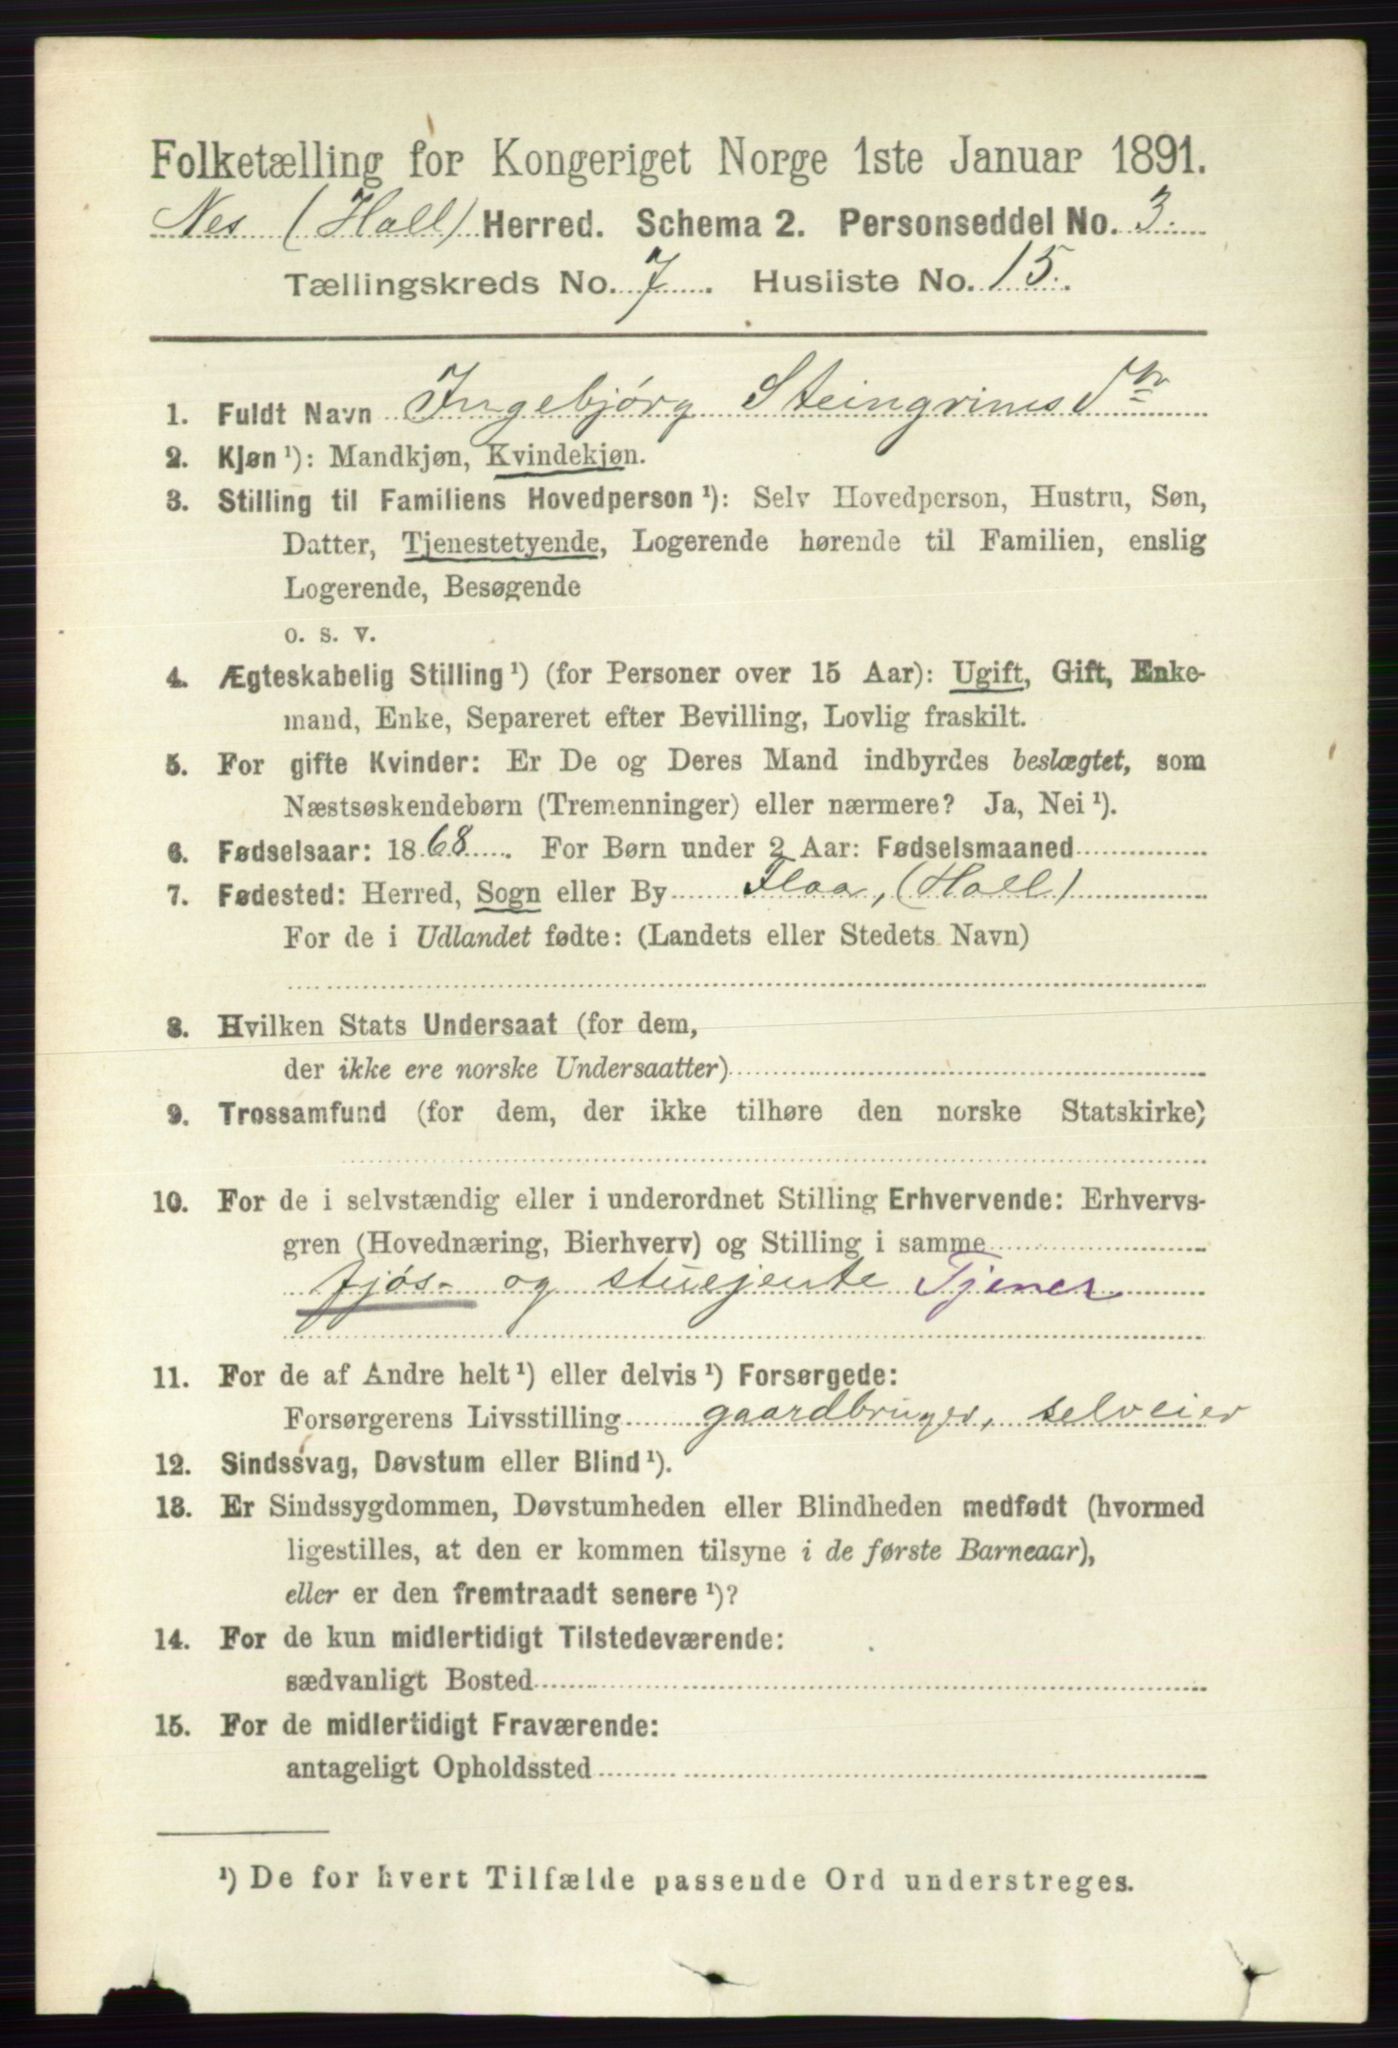 Folketælling for Kongeriget Norge 1ste Januar 1891.
Nes (Hall) Herred. Schema 2. Personseddel No. 3.
Tællingskreds No. 7. Husliste No. 15.
1. Fuldt Navn Ingebjørg Steingrimsdtr
2. Kjøn ¹): Mandkjøn, Kvindekjøn.
3. Stilling til Familiens Hovedperson ¹): Selv Hovedperson, Hustru, Søn,
Datter, Tjenestetyende, Logerende hørende til Familien, enslig
Logerende, Besøgende
o. s. v.
4. Ægteskabelig Stilling ¹) (for Personer over 15 Aar): Ugift, Gift, Enke-
mand, Enke, Separeret efter Bevilling, Lovlig fraskilt.
5. For gifte Kvinder: Er De og Deres Mand indbyrdes beslægtet, som
Næstsøskendebørn (Tremenninger) eller nærmere? Ja, Nei ¹).
6. Fødselsaar: 1868. For Børn under 2 Aar: Fødselsmaaned
7. Fødested: Herred, Sogn eller By Flaa, (Hall)
For de i Udlandet fødte: (Landets eller Stedets Navn)
8. Hvilken Stats Undersaat (for dem,
der ikke ere norske Undersaatter)
9. Trossamfund (for dem, der ikke tilhøre den norske Statskirke)
10. For de i selvstændig eller i underordnet Stilling Erhvervende: Erhvervs-
gren (Hovednæring, Bierhverv) og Stilling i samme
fjøs- og stuejente Tjener
11. For de af Andre helt ¹) eller delvis ¹) Forsørgede:
Forsørgerens Livsstilling gaardbruger, selveier
12. Sindssvag, Døvstum eller Blind ¹).
13. Er Sindssygdommen, Døvstumheden eller Blindheden medfødt (hvormed
ligestilles, at den er kommen tilsyne i de første Barneaar),
eller er den fremtraadt senere ¹)?
14. For de kun midlertidigt Tilstedeværende:
sædvanligt Bosted
15. For de midlertidigt Fraværende:
antageligt Opholdssted
¹) De for hvert Tilfælde passende Ord understreges.